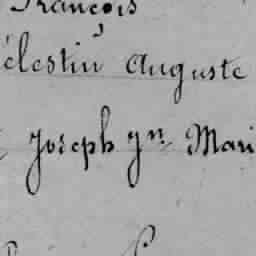 François
élestin Auguste
Joseph Jn Mari